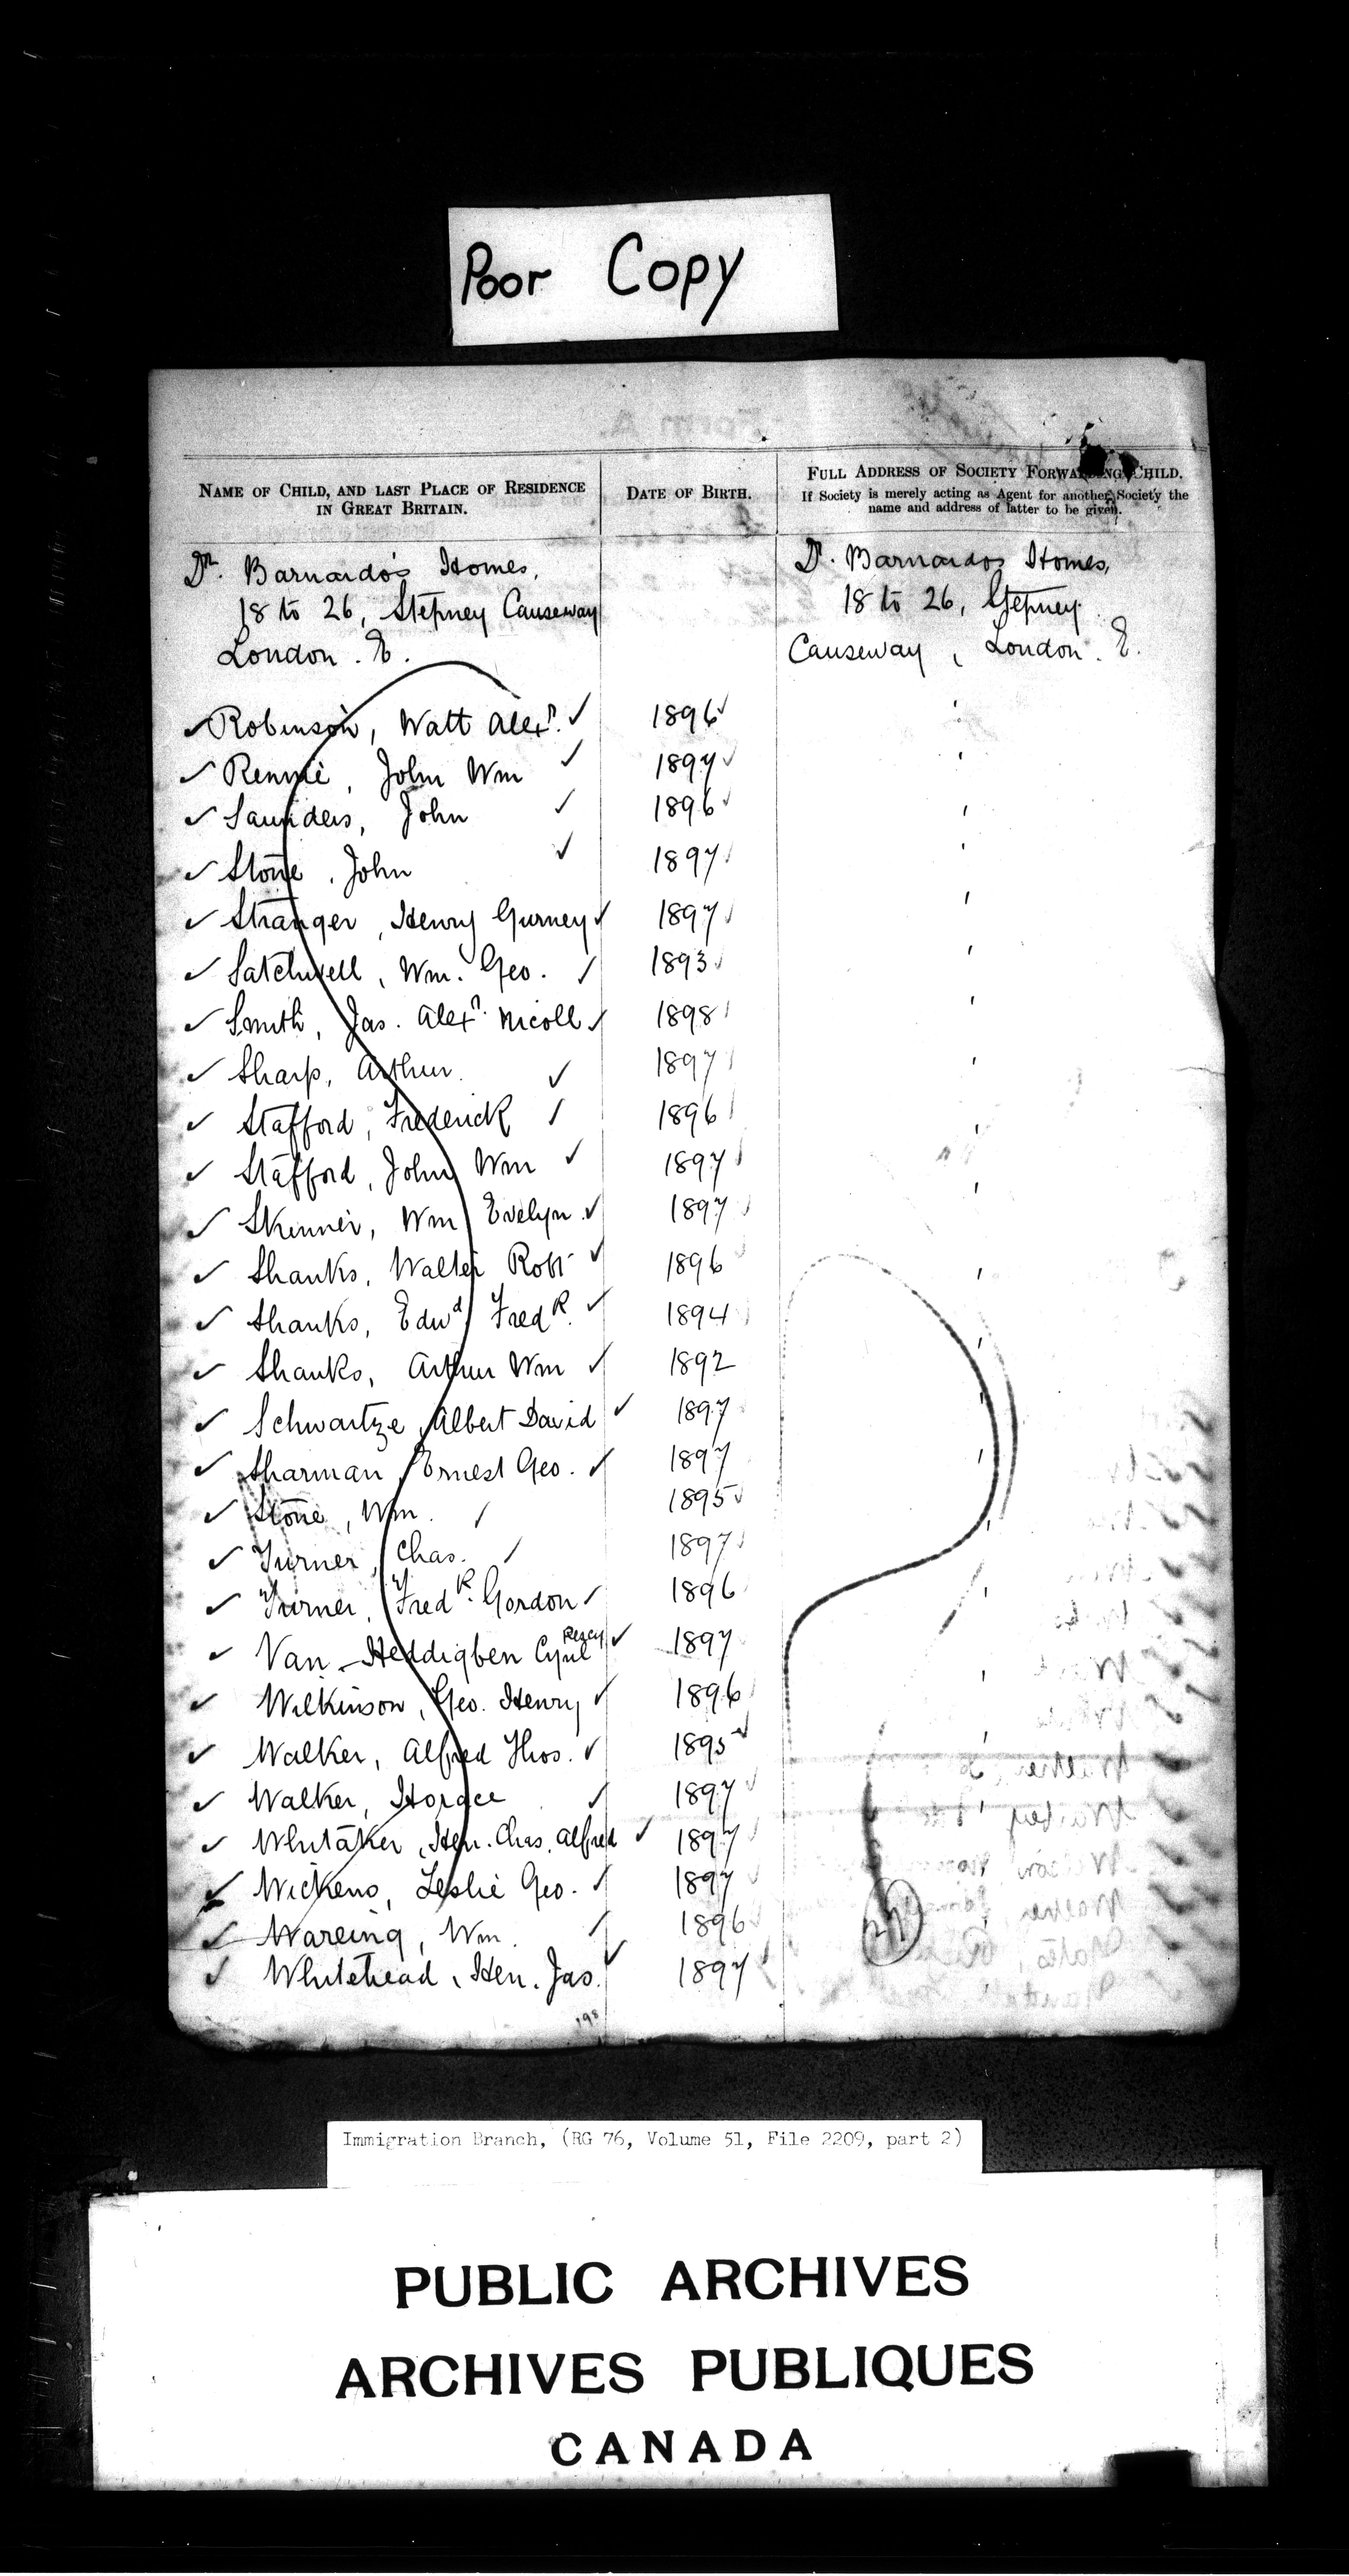 Poor Copy
NAME OF CHILD, AND LAST PLACE OF RESIDENCE IN GREAT BRITAIN.
DATE OF BIRTH.
FULL ADDRESS OF SOCIETY FORWARDING CHILD.
If Society is merely acting as Agent for another Society the name and address of latter to be given.
Dr. Barnardo's Homes, 
18 to 26, Stepney Causeway
London. E.
Dr. Barnardos Homes,
18 to 26, Stepney
Causeway, London. E.
✓ Robinson, Watt Alexr. ✓ 1896 ✓
✓ Rennie, John Wm ✓ 1897 ✓
✓ Saunders, John ✓ 1896 ✓
✓ Stone, John ✓ 1897 ✓
✓ Stranger, Henry Gurney ✓ 1897 ✓
✓ Satchwell, Wm. Geo. ✓ 1893 ✓
✓ Smith, Jas. Alexr. Nicoll ✓ 1898 ✓
✓ Sharp, Arthur. ✓ 1897 ✓
✓ Stafford, Frederick ✓ 1896 ✓
✓ Stafford, John Wm ✓ 1897 ✓
✓ Skinner, Wm Evelyn ✓ 1897 ✓
✓ Shanks, Walter Robt ✓ 1896 ✓
✓ Shanks, Edwd Fredk. ✓ 1894 ✓
✓ Shanks, Arthur Wm ✓ 1892
✓ Schwartze, Albert David ✓ 1897
✓ Sharman, Ernest Geo. ✓ 1897
✓ Stone, Wm. ✓ 1895 ✓
✓ Turner, Chas. ✓ 1897 ✓
✓ Turner, Fredk. Gordon ✓ 1896
✓ Van-Heddigben Cyril Percy ✓ 1897
✓ Wilkinson, Geo. Henry ✓ 1896
✓ Walker, Alfred Thos. ✓ 1895 ✓
✓ Walker, Horace ✓ 1897 ✓
✓ Whitaker, Hen. Chas. Alfred ✓ 1897
✓ Wickens, Leslie Geo. ✓ 1897
✓ Wareing, Wm. ✓ 1896
✓ Whitehead, Hen. Jas. ✓ 1897 ✓
27
Immigration Branch, (RG 76, Volume 51, File 2209, part 2)
PUBLIC ARCHIVES
ARCHIVES PUBLIQUES
CANADA